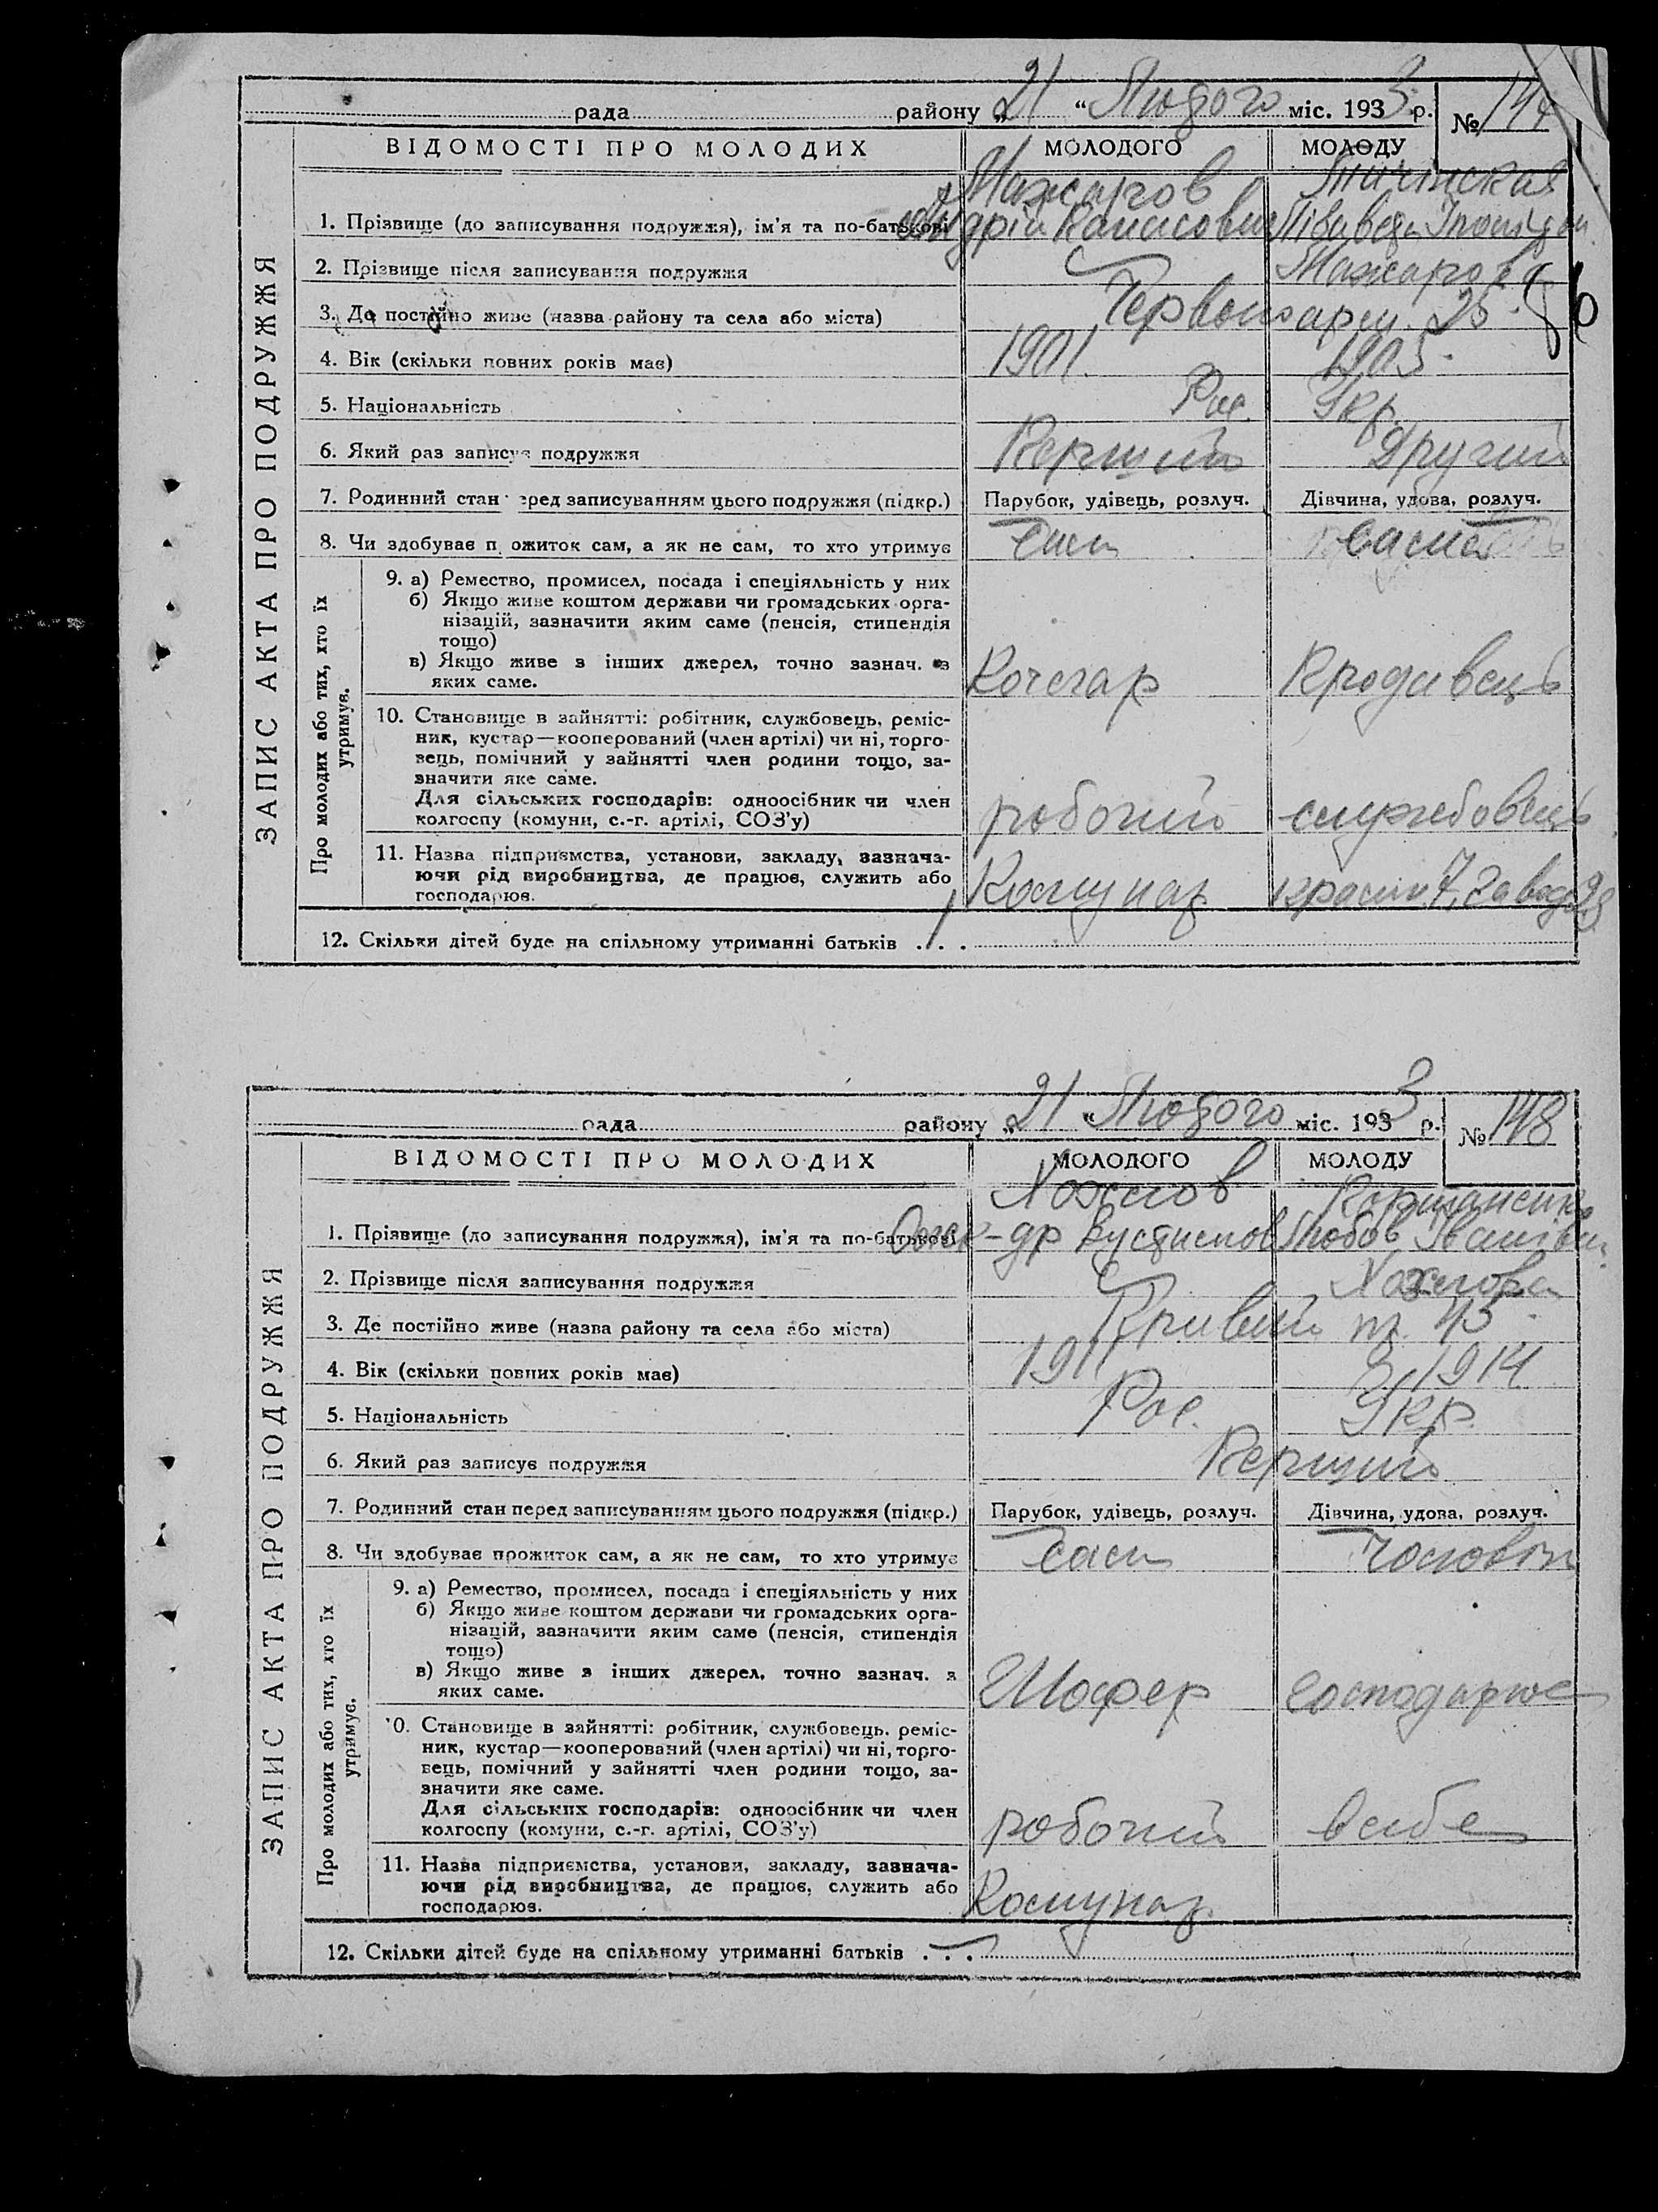 рада району „21“ Лютого міс. 1933 р. № 147
ВІДОМОСТІ ПРО МОЛОДИХ МОЛОДОГО МОЛОДУ
ЗАПИС АКТА ПРО ПОДРУЖЖЯ
Мажаров
1. Прізвище (до записування подружжя), ім'я та по-батькові
2. Прізвище після записування подружжя Мажарова
3. Де постійно живе (назва району та села або міста) Червоноарм. 25-
4. Вік (скільки повних років має) 1901. 1905.
5. Національність Рос. Укр.
6. Який раз записує подружжя Перший Другий
7. Родинний стан перед записуванням цього подружжя (підкр.) Парубок, удівець, розлуч. Дівчина, удова, розлуч.
8. Чи здобуває прожиток сам, а як не сам, то хто утримує сам сама
Про молодих або тих, хто їх утримує.
9. а) Ремество, промисел, посада і спеціяльність у них
б) Якщо живе коштом держави чи громадських орга-
нізацій, зазначити яким саме (пенсія, стипендія
тощо)
в) Якщо живе з інших джерел, точно зазнач. з
яких саме. Кочегар Продавець
10. Становище в зайнятті: робітник, службовець, реміс-
ник, кустар—кооперований (член артілі) чи ні, торго-
вець, помічний у зайнятті член родини тощо, за-
значити яке саме.
Для сільських господарів: одноосібник чи член
колгоспу (комуни, с.-г. артілі, СОЗ'у) робочий службовець
11. Назва підприємства, установи, закладу, зазнача-
ючи рід виробництва, де працює, служить або
господарює. Комунар
12. Скільки дітей буде на спільному утриманні батьків . . . 1
рада району „21“ Лютого міс. 1933 р. № 148
ВІДОМОСТІ ПРО МОЛОДИХ МОЛОДОГО МОЛОДУ
ЗАПИС АКТА ПРО ПОДРУЖЖЯ
1. Прізвище (до записування подружжя), ім'я та по-батькові Любов Іванівна
2. Прізвище після записування подружжя
3. Де постійно живе (назва району та села або міста) Кривий
4. Вік (скільки повних років має) 1911 1914
5. Національність Рос. Укр.
6. Який раз записує подружжя Перший
7. Родинний стан перед записуванням цього подружжя (підкр.) Парубок, удівець, розлуч. Дівчина, удова, розлуч.
8. Чи здобуває прожиток сам, а як не сам, то хто утримує сам чоловік
Про молодих або тих, хто їх утримує.
9. а) Ремество, промисел, посада і спеціяльність у них
б) Якщо живе коштом держави чи громадських орга-
нізацій, зазначити яким саме (пенсія, стипендія
тощо)
в) Якщо живе з інших джерел, точно зазнач. з
яких саме. Шофер господарює
10. Становище в зайнятті: робітник, службовець, реміс-
ник, кустар—кооперований (член артілі) чи ні, торго-
вець, помічний у зайнятті член родини тощо, за-
значити яке саме.
Для сільських господарів: одноосібник чи член
колгоспу (комуни, с.-г. артілі, СОЗ'у) робочий в себе
11. Назва підприємства, установи, закладу, зазнача-
ючи рід виробництва, де працює, служить або
господарює. Комунар
12. Скільки дітей буде на спільному утриманні батьків . . . —